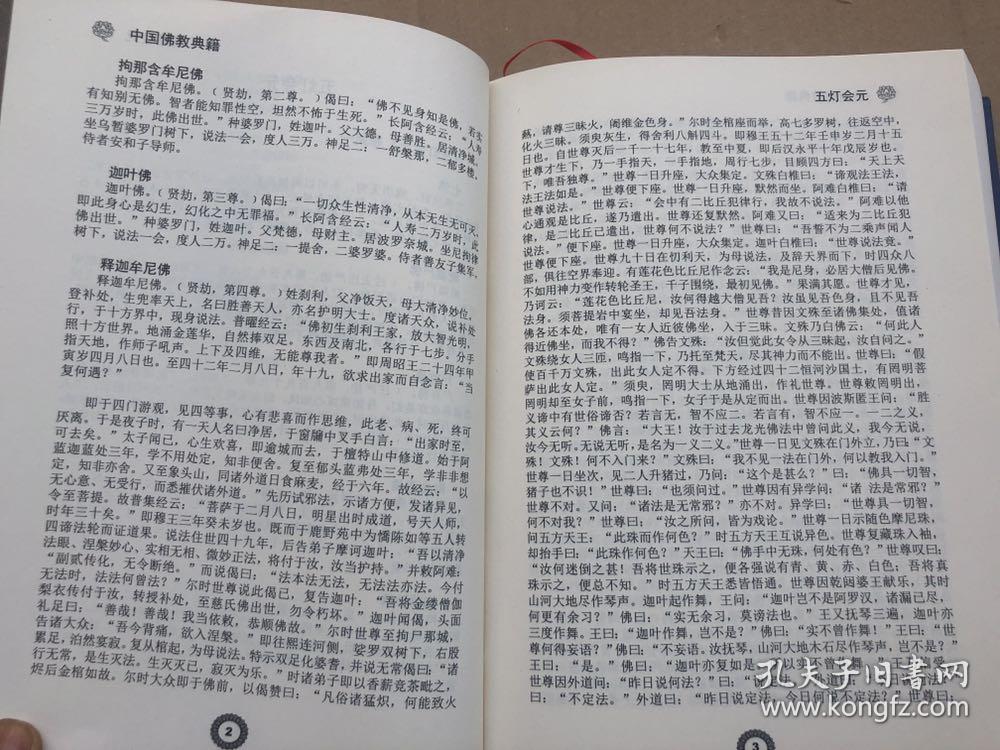 中国佛教典籍
拘那含牟尼佛
拘那含牟尼佛。（贤劫，第二尊。）偈曰：“佛不见身知是佛，若实
有知别无佛。智者能知罪性空，坦然不怖于生死。”长阿含经云：“人寿
三万岁时，此佛出世。”种婆罗门，姓迦叶。父大德，母善胜。居清净城。
坐乌暂婆罗门树下，说法一会，度人三万。神足二：一舒槃那，二郁多楼。
侍者安和子导师。
迦叶佛
迦叶佛。（贤劫，第三尊。）偈曰：“一切众生性清净，从本无生无可灭。
即此身心是幻生，幻化之中无罪福。”长阿含经云：“人寿二万岁时，此
佛出世。”种婆罗门，姓迦叶。父梵德，母财主。居波罗奈城。坐尼拘律
树下，说法一会，度人二万。神足二：一提舍，二婆罗婆。侍者善友子集军。
释迦牟尼佛
释迦牟尼佛。（贤劫，第四尊。）姓刹利，父净饭天，母大清净妙位。
登补处，生兜率天上，名曰胜善天人，亦名护明大士。度诸天众，说补处
行，于十方界中，现身说法。普曜经云：“佛初生刹利王家，放大智光明，
照十方世界。地涌金莲华，自然捧双足。东西及南北，各行于七步。分手
指天地，作师子吼声。上下及四维，无能尊我者。”即周昭王二十四年甲
寅岁四月八日也。至四十二年二月八日，年十九，欲求出家而自念言：“当
复何遇？”
即于四门游观，见四等事，心有悲喜而作思维，此老、病、死，终可
厌离。于是夜子时，有一天人名曰净居，于窗牖中叉手白言：“出家时至，
可去矣。”太子闻已，心生欢喜，即逾城而去，于檀特山中修道。始于阿
蓝迦蓝处三年，学不用处定，知非便舍。复至郁头蓝弗处三年，学非非想
定，知非亦舍。又至象头山，同诸外道日食麻麦，经于六年。故经云：“以
无心意、无受行，而悉摧伏诸外道。”先历试邪法，示诸方便，发诸异见，
令至菩提。故普集经云：“菩萨于二月八日，明星出时成道，号天人师，
时年三十矣。”即穆王三年癸未岁也。既而于鹿野苑中为憍陈如等五人转
四谛法轮而证道果。说法住世四十九年，后告弟子摩诃迦叶：“吾以清净
法眼、涅槃妙心、实相无相、微妙正法，将付于汝，汝当护持。”并敕阿难：
“副贰传化，无令断绝。”而说偈曰：“法本法无法，无法法亦法。今付
无法时，法法何曾法？”尔时世尊说此偈已，复告迦叶：“吾将金缕僧伽
梨衣传付于汝，转授补处，至慈氏佛出世，勿令朽坏。”迦叶闻偈，头面
礼足曰：“善哉！善哉！我当依敕，恭顺佛故。”尔时世尊至拘尸那城，
告诸大众：“吾今背痛，欲入涅槃。”即往熙连河侧，娑罗双树下，右胁
累足，泊然宴寂。复从棺起，为母说法。特示双足化婆耆，并说无常偈曰：“诸
行无常，是生灭法。生灭灭已，寂灭为乐。”时诸弟子即以香薪竞茶毗之，
烬后金棺如故。尔时大众即于佛前，以偈赞曰：“凡俗诸猛炽，何能致火
2
五灯会元
爇，请尊三昧火，阇维金色身。”尔时金棺座而举，高七多罗树，往返空中，
化火三昧。须臾灰生，得舍利八斛四斗。即穆王五十二年壬申岁二月十五
日也。自世尊灭后一千一十七年，教至中夏，即后汉永平十年戊辰岁也。
世尊才生下，乃一手指天，一手指地，周行七步，目顾四方曰：“天上天
下，唯吾独尊。”世尊一日升座，大众集定。文殊白椎曰：“谛观法王法，
法王法如是。”世尊便下座。世尊一日升座，默然而坐。阿难白椎曰：“请
世尊说法。”世尊云：“会中有二比丘犯律行，我故不说法。”阿难以他
心通观是比丘，遂乃遣出。世尊还复默然。阿难又曰：“适来为二比丘犯
律，是二比丘已遣出，世尊何不说法？”世尊曰：“吾誓不为二乘声闻人
说法。”便下座。世尊一日升座，大众集定。迦叶白椎曰：“世尊说法竟。”
世尊便下座。世尊九十日在忉利天，为母说法，及辞天界而下，时四众八
部，俱往空界奉迎。有莲花色比丘尼作念云：“我是尼身，必居大僧后见佛。
不如用神力变作转轮圣王，千子围绕，最初见佛。”果满其愿。世尊才见，
乃诃云：“莲花色比丘尼，汝何得越大僧见吾？汝虽见吾色身，且不见吾
法身。须菩提岩中宴坐，却见吾法身。”世尊昔因文殊至诸佛集处，值诸
佛各还本处，唯有一女人近彼佛坐，入于三昧。文殊乃白佛云：“何此人
得近佛坐，而我不得？”佛告文殊：“汝但觉此女令从三昧起，汝自问之。”
文殊绕女人三匝，鸣指一下，乃托至梵天，尽其神力而不能出。世尊曰：“假
使百千万文殊，出此女人定不得。下方经过四十二恒河沙国土，有罔明菩
萨出此女人定。”须臾，罔明大士从地涌出，作礼世尊。世尊敕罔明出，
罔明却至女子前，鸣指一下，女子于是从定而出。世尊因波斯匿王问：“胜
义谛中有世俗谛否？若言无，智不应二。若言有，智不应一。一二之义，
其义云何？”佛言：“大王！汝于过去龙光佛法中曾问此义，我今无说，
汝今无听。无说无听，是名为一义二义。”世尊一日见文殊在门外立，乃曰：
“文殊！文殊！何不入门来？”文殊曰：“我不见一法在门外，何以教我入门。”
世尊一日坐次，见二人升猪过，乃问：“这个是甚么？”曰：“佛具一切智，
猪子也不识！”世尊曰：“也须问过。”世尊因有异学问：“诸 法是常邪？”
世尊不对。又问：“诸法是无常邪？”亦不对。异学曰：“世尊具一切智，
何不对我？”世尊曰：“汝之所问，皆为戏论。”世尊一日示随色摩尼珠，
问五方天王：“此珠而作何色？”时五方天王互说异色。世尊复藏珠入袖，
却抬手曰：“此珠作何色？”天王曰：“佛手中无珠，何处有色？”世尊叹曰：
“汝何迷倒之甚！吾将世珠示之，便各强说有青、黄、赤、白色；吾将真
珠示之，便总不知。”时五方天王悉皆悟道。世尊因乾闼婆王献乐，其时
山河大地尽作琴声。迦叶起作舞，王问：“迦叶岂不是阿罗汉，诸漏已尽，
何更有余习？”佛曰：“实无余习，莫谤法也。”王又抚琴三遍，迦叶亦
三度作舞。王曰：“迦叶作舞，岂不是？”佛曰：“实不曾作舞！”王曰：“世
尊何得妄语？”佛曰：“不妄语。汝抚琴，山河大地木石尽作琴声，岂不是？”
王曰：“是。”佛曰：“迦叶亦复如是。所以实不曾作舞。”王乃信受。
世尊因外道问：“昨日说何法？”曰：“说定法。”外道曰：“今日说何法？”
曰：“不定法。”外道曰：“昨日说定法，今日何说不定法？”世尊曰：
3
孔夫子旧书网
www.kongfz.com